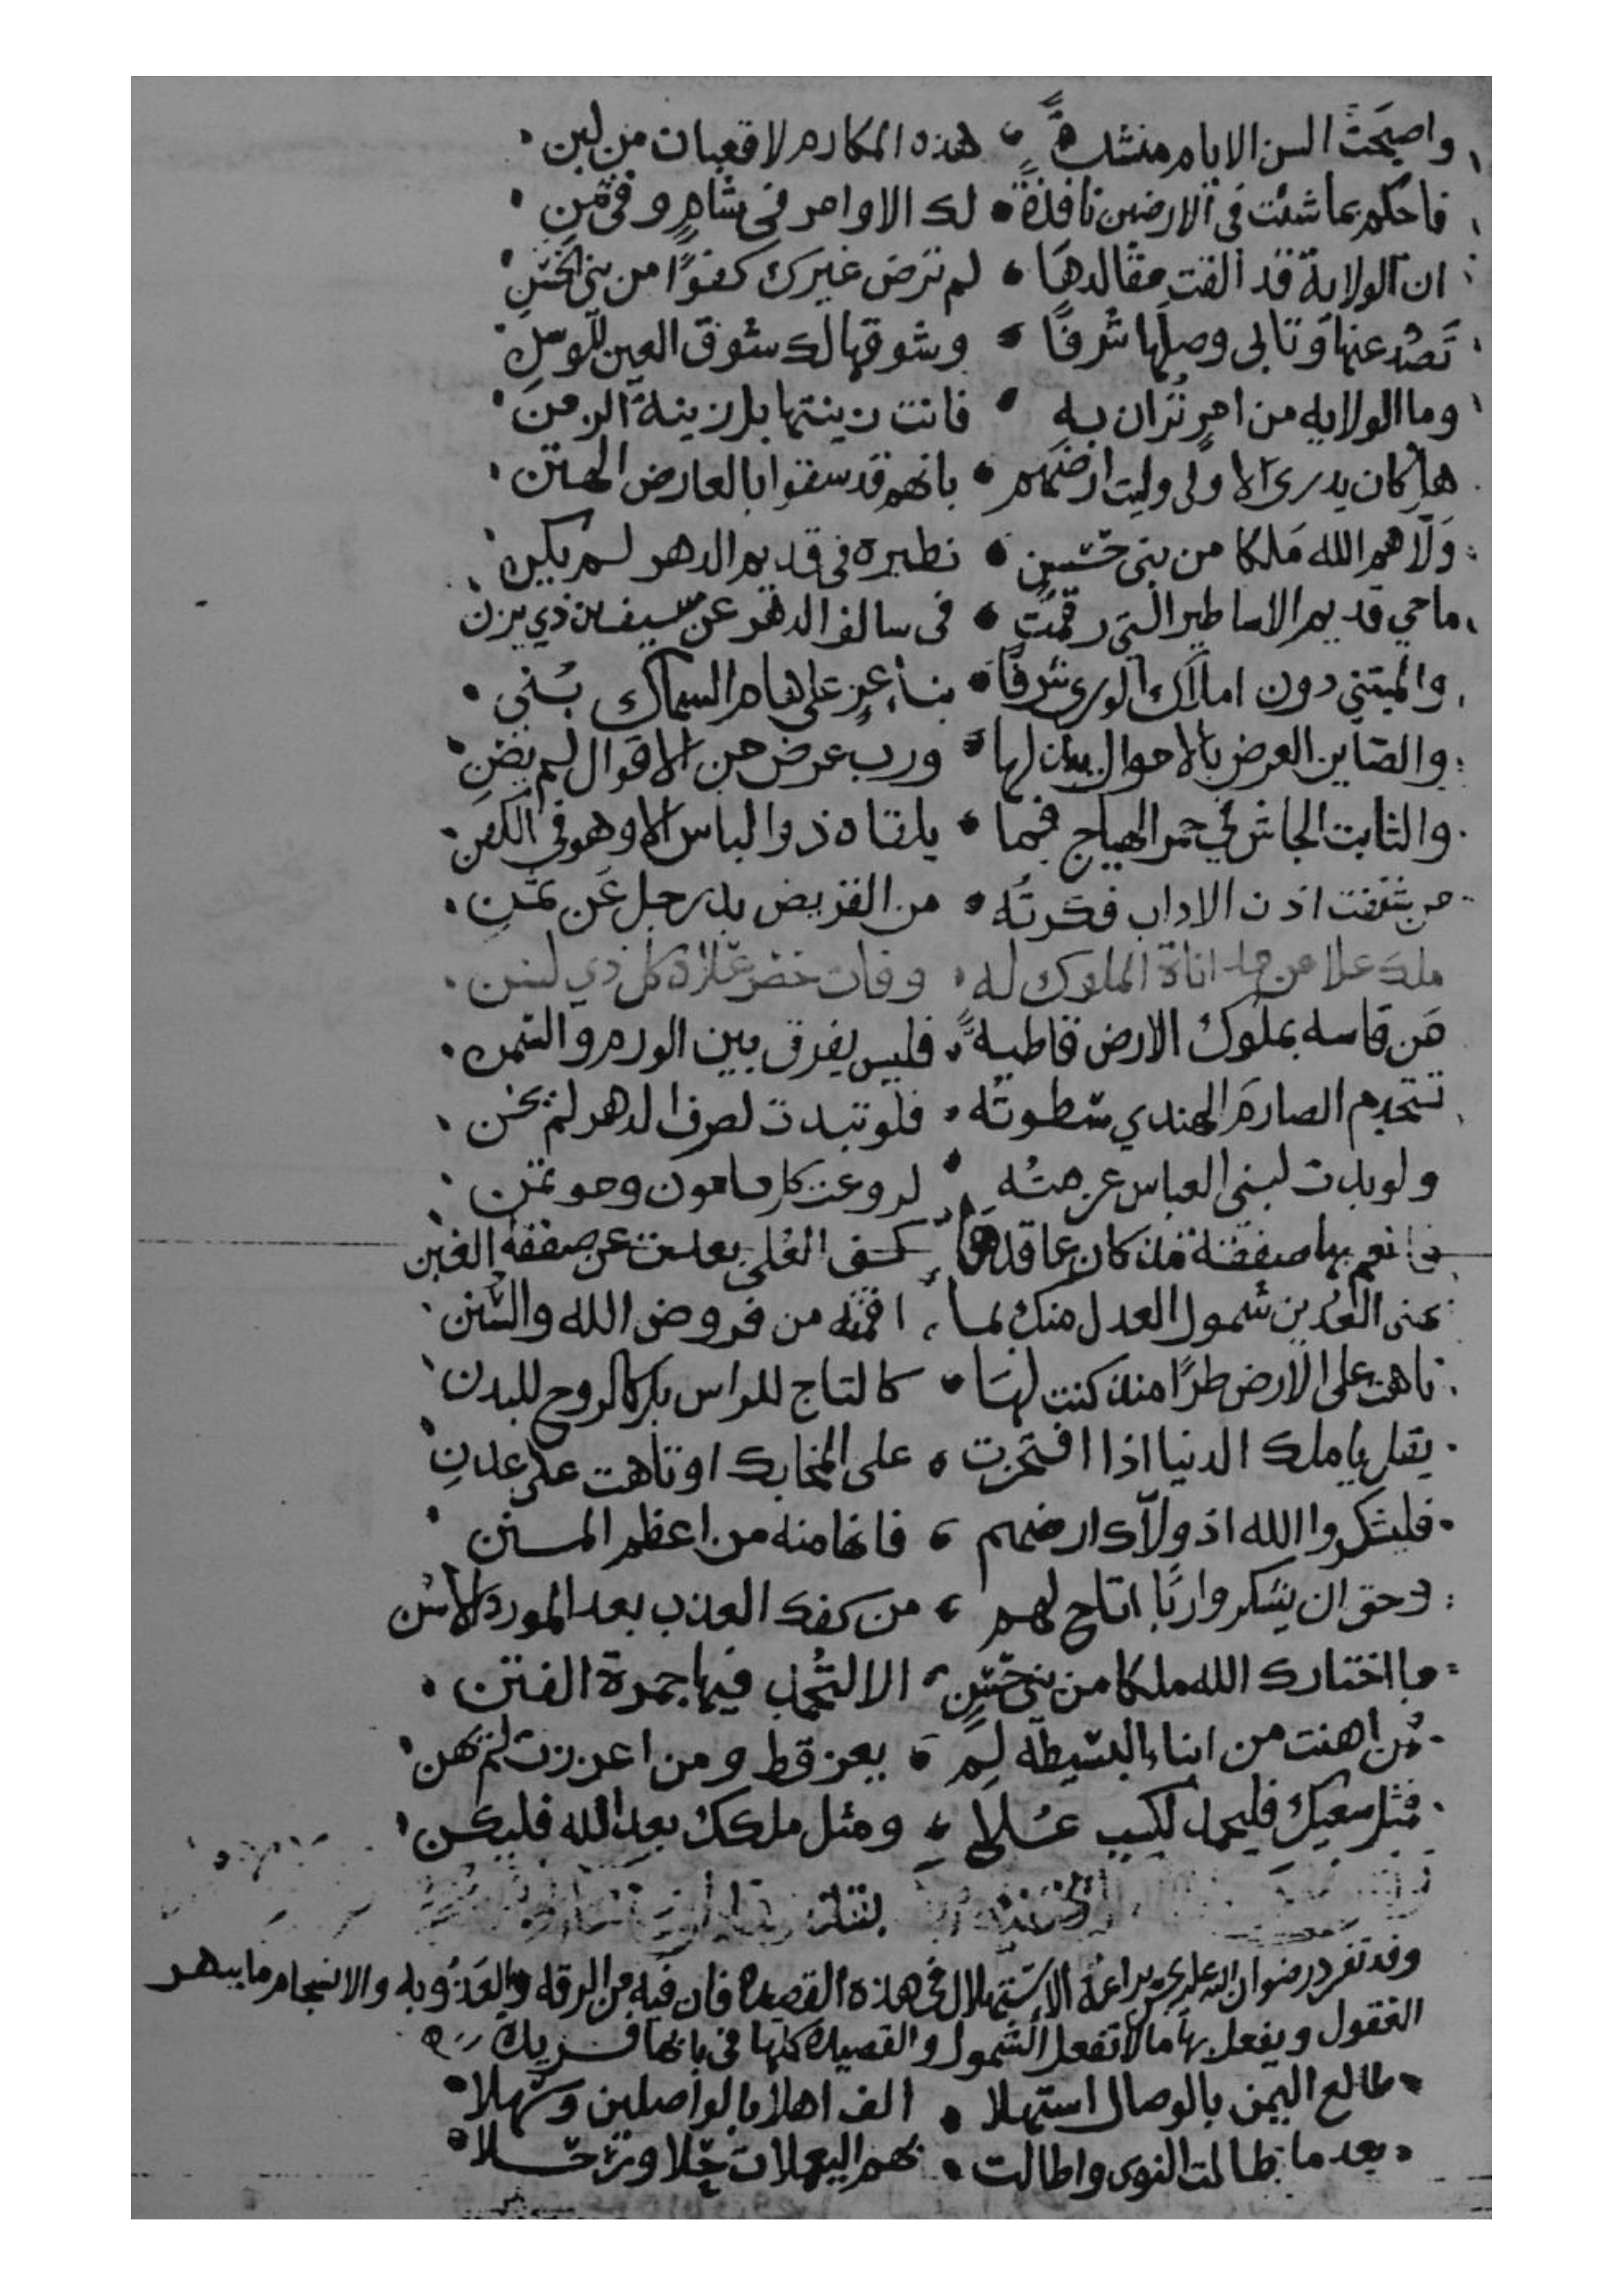 واصبحت السن الايام منشدةً هذه المكارم لا قعبان من لبن
فاحكم بما شئت في الارضين نافذة لك الاوامر في شام وفي يمن
ان الولاية قد القت مقالدها لم ترض غيرك كفوًا من بني الحسن
تصد عنها وتابى وصلها شرفًا وشوقها لك شوق العين للوسن
وما الولايه من امرٍ تزان به فانت زينتها بل زينة الزمن
هل كان يدرى الاولى وليت ارضهم بانهم قد سقوا بالعارض الهتن
ولاهم الله ملكا من بني حسنٍ نظيره في قديم الدهر لم يكن
ماحي قديم الاساطير التي رقمت في سالف الدهر عن سيف بن ذي يزن
والمبتني دون املاك الورى شرفًا بناء عزٍ على هام السماك بني
والصاين العرض بالاموال ورب عرض من الاقوال لم يصن
والثابت الجاش في حمر الهياج فما يلقاه ذو الباس الا وهو في الكفن
من شنفت اذن الاداب فكرته من القريض بدر جل عن ثمن
ملك علا عن اناة الملوك له وفات كل ذي لسن
من قاسه بملوك الارض قاطبةً فليس يفرق بين الورم والسمن
تستخدم الصارم الهندي سطوته فلو تبدت لصرف الدهر لم يخن
ولو بدت لبني العباس عزمته لروعت كل مامون ومؤتمن
فانعم بها صفقة مذ كان عاقدها كف العلى بعدت عن صفقة الغبن
شمول العدل منك بما اقمته من فروض الله والسنن
تاهت على الارض طرًا منذ كنت لها كالتاج للراس بل كالروح للبدن
بك يا ملك الدنيا اذا افتخرت على او تاهت على عدن
فليشكروا الله اذ ولاك ارضهم فانها منه من اعظم المنن
وحق ان يشكروا ربًا اتاح لهم من كفك العذب بعد المورد الاسن
ما اختارك الله ملكا من بني حسنٍ الا لتخمد فيها جمرة الفتن
من اهنت من ابناء البسيطة لم يعز قط ومن اعززت لم يهن
فمثل سعيك فليجهد لكسب علا ومثل ملكك بعد الله فليكن
وقد تفرد رضوان الله عليه بحسن براعة الاستهلال في هذه القصيدة فان فيه من الرقه والعذوبه والانسجام ما يبهر
العقول ويفعل بها ما لا تفعل الشمول والقصيدة كلها في بابها فريدة
طالع اليمن بالوصال استهلا الف اهلا بالواصلين وسهلا
بعد ما طالت النوى واطالت بهم اليعملات حلا وترحلا